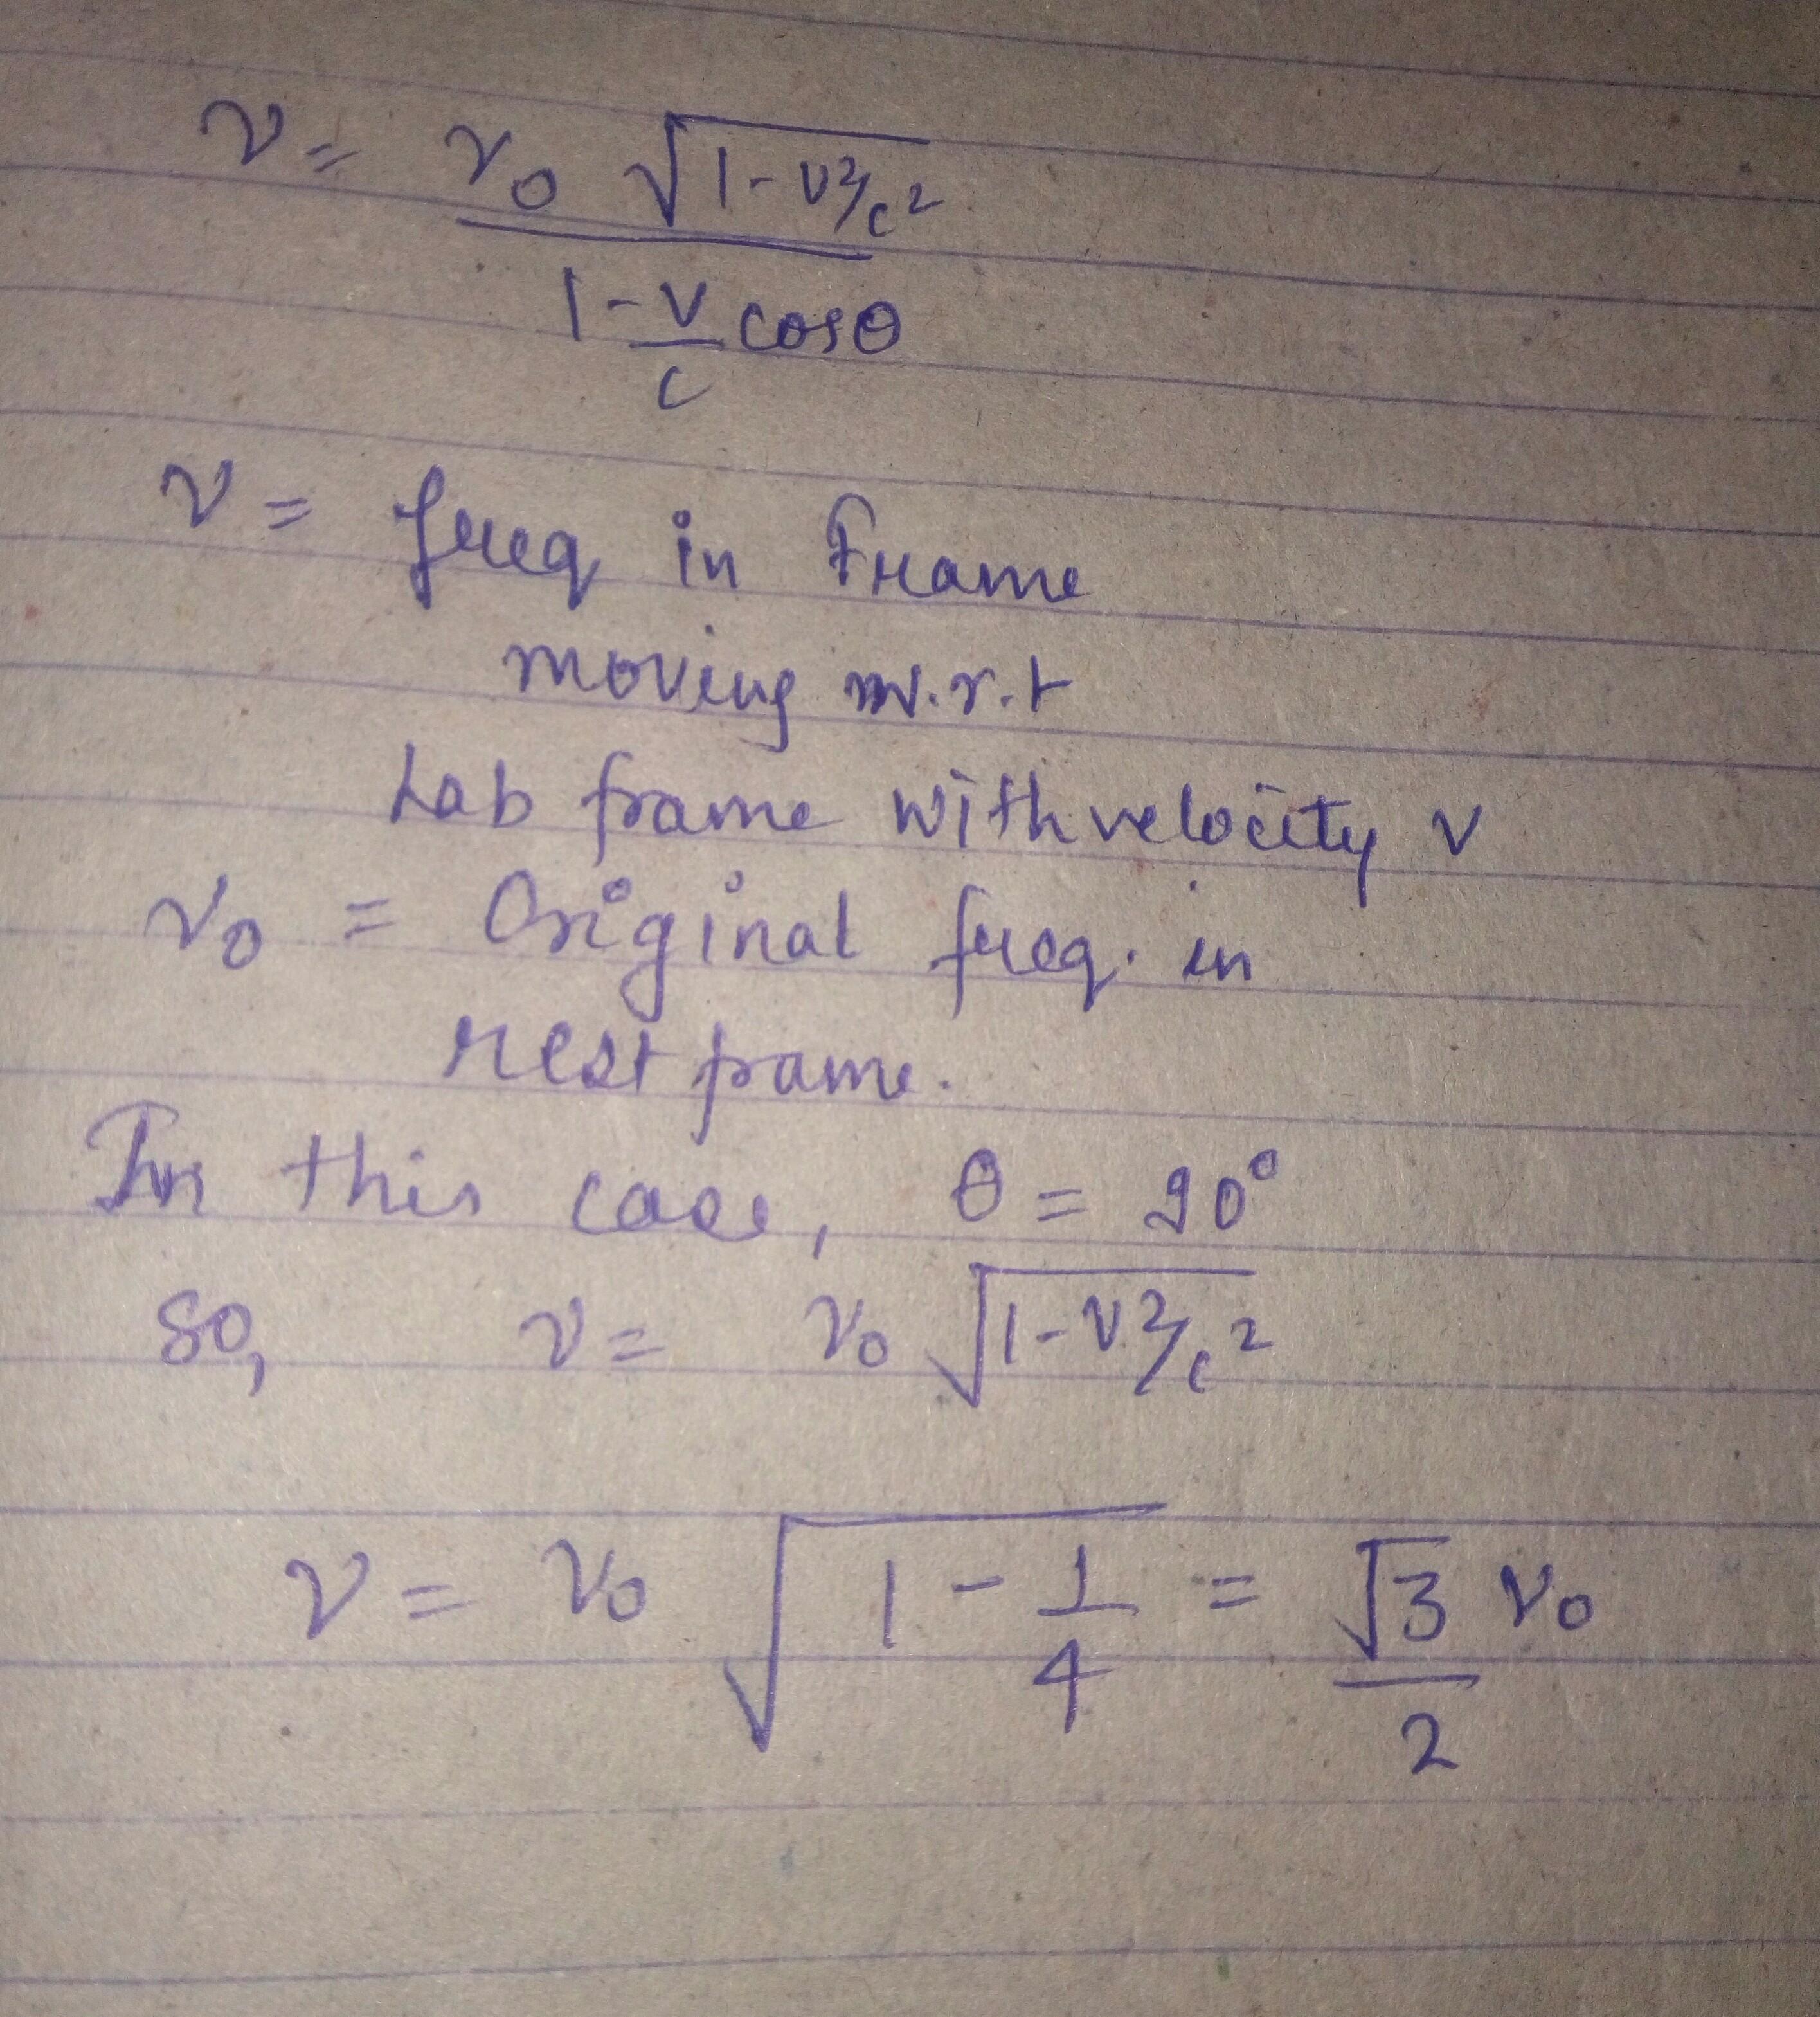 ν = ν₀ √(1-v²/c²)
1 - v/c cosθ
ν = freq in Frame
moving w.r.t
Lab frame with velocity v
ν₀ = Original freq. in
rest frame.
In this case, θ = 90°
so, ν = ν₀ √(1-v²/c²)
ν = ν₀ √(1 - 1/4) = √3/2 ν₀